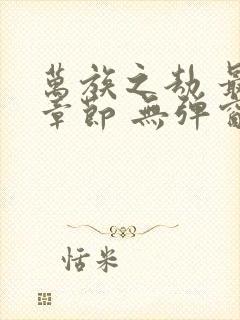 萬族之劫 最
章節 無彈窗
恬米